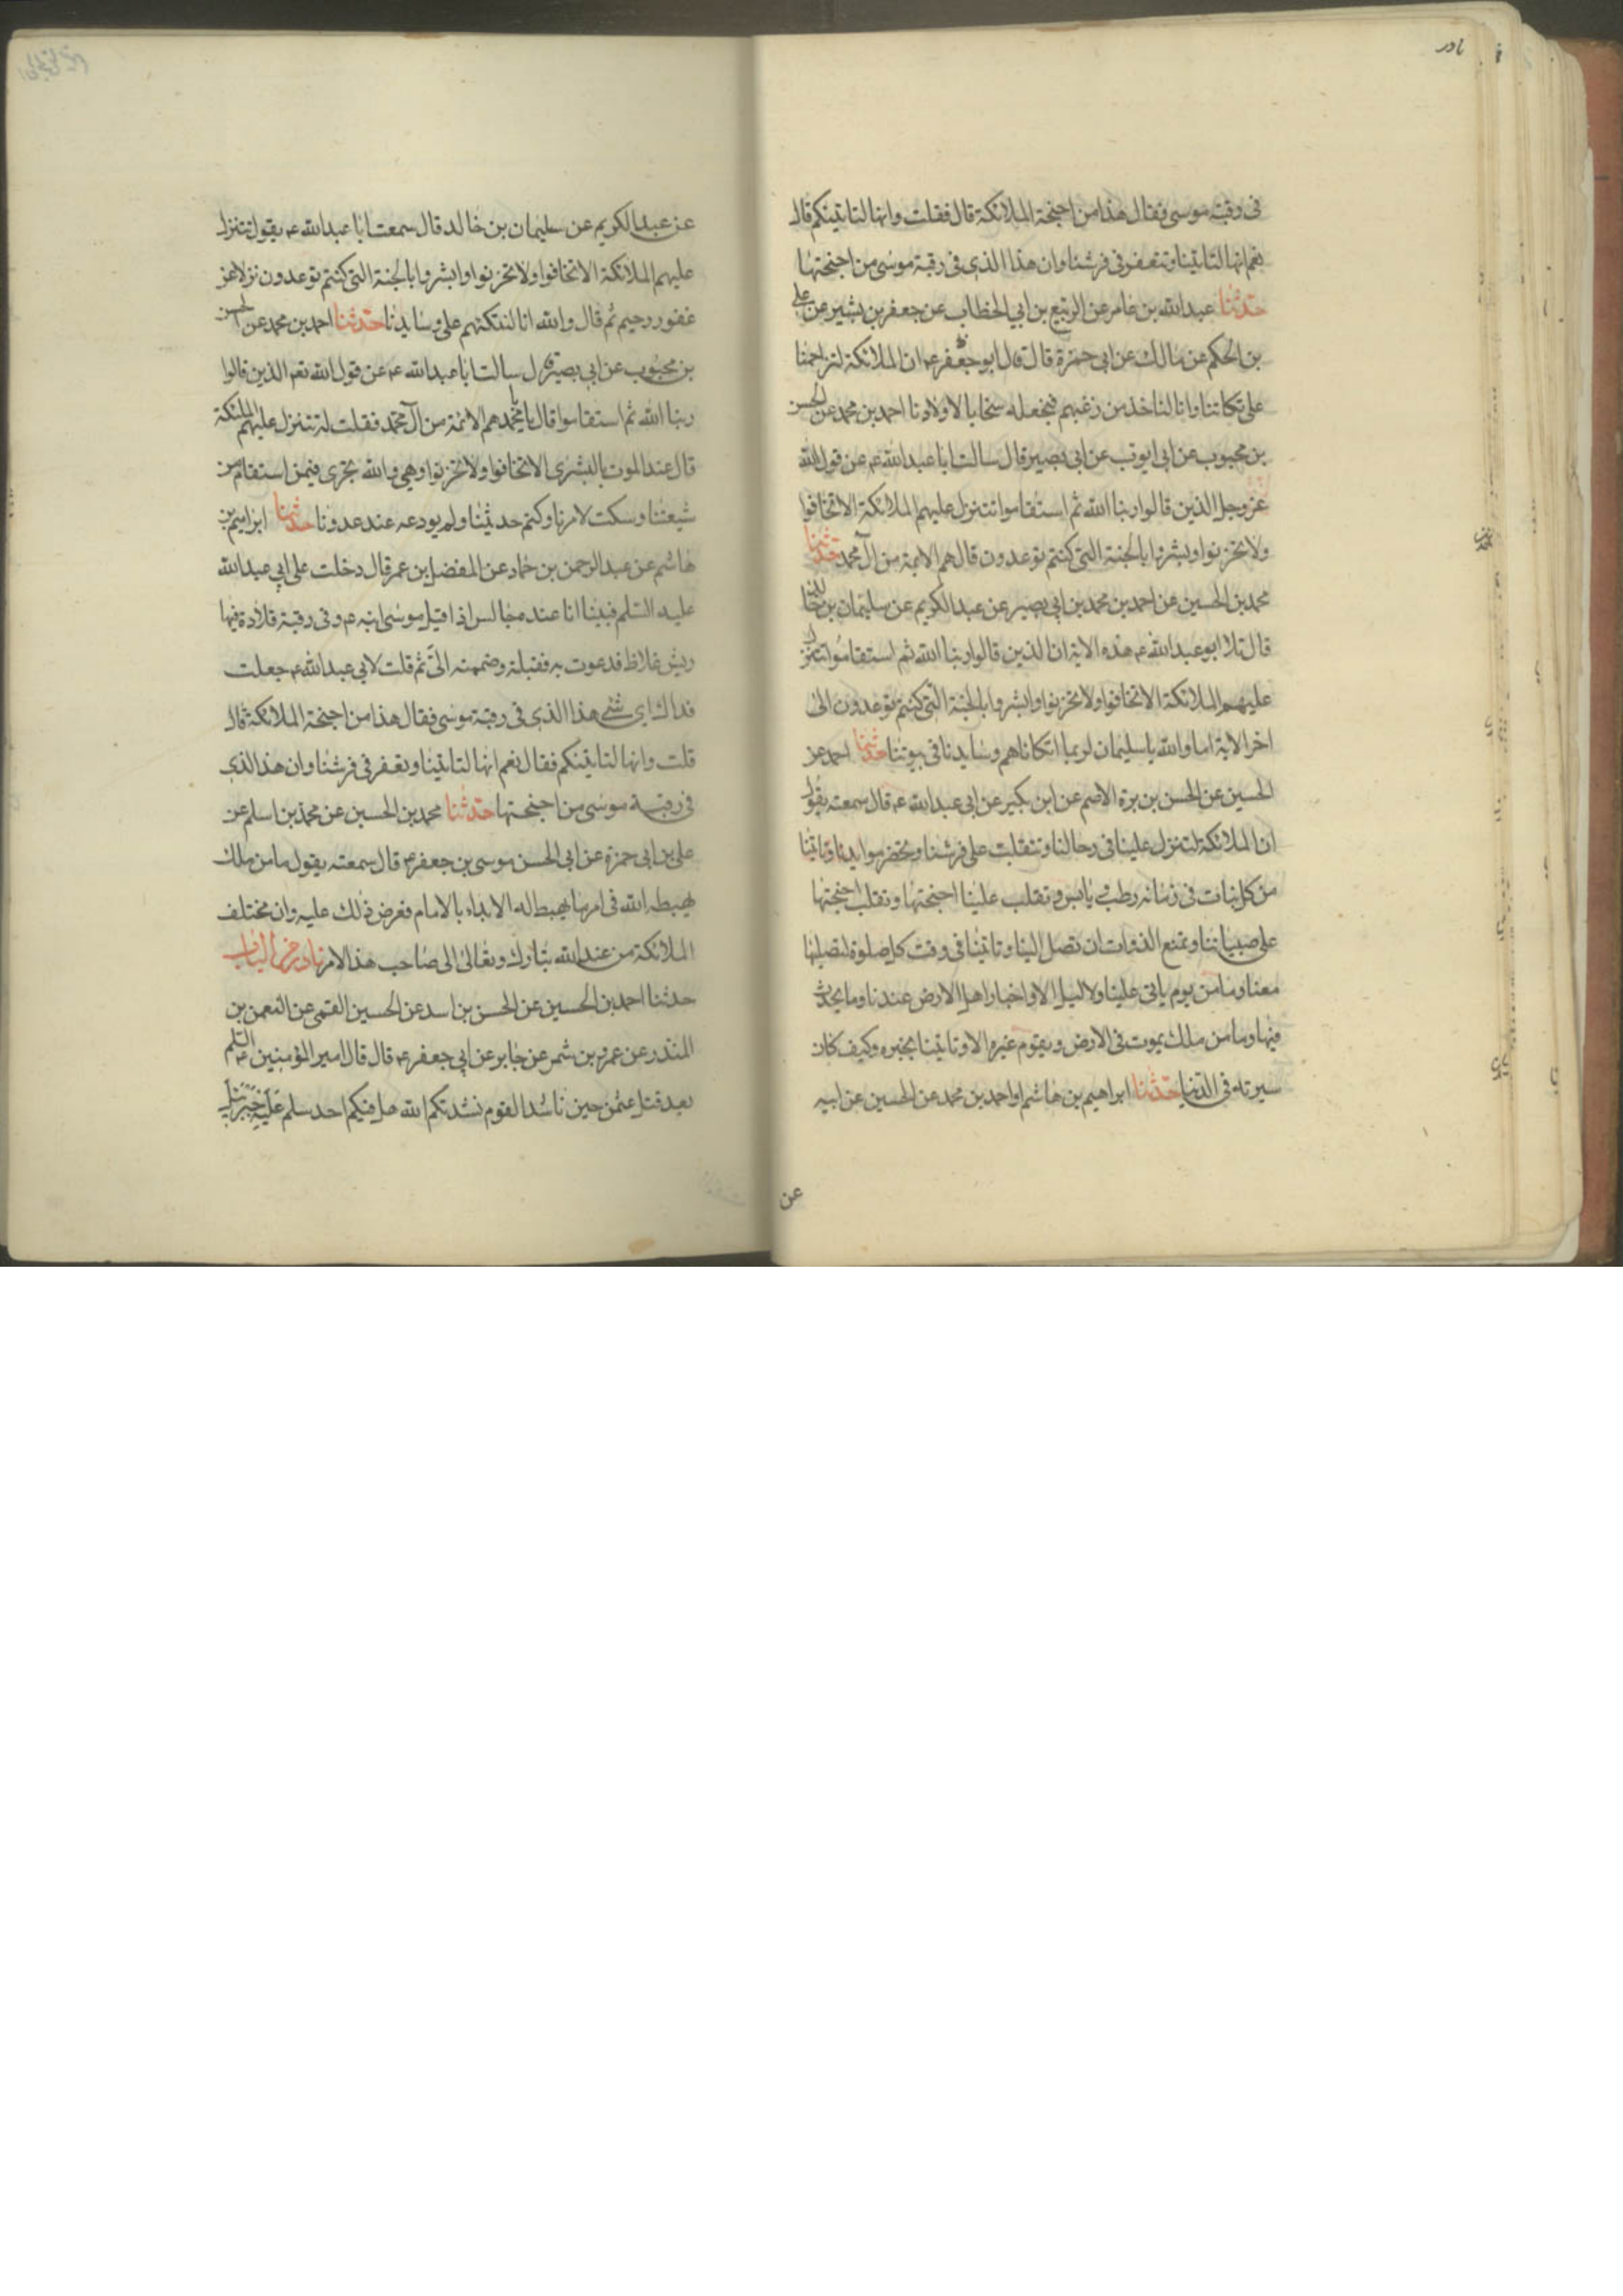 نادر
فى رقبة موسى فقال هذا من اجنحة الملائكة قال فقلت وانها لتاتينكم قال
نعم انها لتاتينا وتتعفر فى فرشنا وان هذا الذى فى رقبة موسى من اجنحتها
حدثنا عبدالله بن عامر عن الربيع بن ابى الخطاب عن جعفر بن بشير عن على
بن الحكم عن مالك عن ابى حمزة قال قال ابو جعفر ع ان الملائكة لتزاحمنا
على تكاتنا وانا لناخذ من زغبهم فنجعله سخابا لاولادنا احمد بن محمد عن الحسن
بن محبوب عن ابى ايوب عن ابى بصير قال سالت ابا عبدالله ع عن قول الله
عزوجل الذين قالوا ربنا الله ثم استقاموا تتنزل عليهم الملائكة الا تخافوا
ولا تحزنوا وابشروا بالجنة التى كنتم توعدون قال هم الائمة من آل محمد حدثنا
محمد بن الحسين عن احمد بن محمد بن ابى بصير عن عبد الكريم عن سليمان بن خالد
قال تلا ابو عبدالله ع هذه الاية ان الذين قالوا ربنا الله ثم استقاموا تتنزل
عليهم الملائكة الا تخافوا ولا تحزنوا وابشروا بالجنة التى كنتم توعدون الى
اخر الاية اما والله يا سليمان لربما اتكاناهم وسايدنا فى بيوتنا حدثنا احمد عن
الحسين عن الحسن بن برة الاصم عن ابن بكير عن ابى عبدالله ع قال سمعته يقول
ان الملائكة لتنزل علينا فى رحالنا وتتقلب على فرشنا وتحضر موايدنا وتاتينا
من كل نبات فى زمانه رطب ويابس وتقلب علينا اجنحتها وتقلب اجنحتها
على صبياننا وتمنع الدواب ان تصل الينا وتاتينا فى وقت كل صلوة لتصليها
معنا وما من يوم ياتى علينا ولا ليل الا واخبار اهل الارض عندنا وما يحدث
فيها وما من ملك يموت فى الارض ويقوم غيره الا وتاتينا بخبره وكيف كان
سيرته فى الدنيا حدثنا ابراهيم بن هاشم او احمد بن محمد عن الحسين عن ابيه
عن
عن عبد الكريم عن سليمان بن خالد قال سمعت ابا عبدالله ع يقول تتنزل
عليهم الملائكة الا تخافوا ولا تحزنوا وابشروا بالجنة التى كنتم توعدون نزلا من
غفور رحيم ثم قال والله انا لنتكئهم على وسايدنا حدثنا احمد بن محمد عن الحسن
بن محبوب عن ابى بصير قال سالت ابا عبدالله ع عن قول الله تعه الذين قالوا
ربنا الله ثم استقاموا قال يا محمد هم الائمة من آل محمد فقلت له تتنزل عليهم الملئكة
قال عند الموت بالبشرى الا تخافوا ولا تحزنوا وهى والله تجرى فيمن استقام من
شيعتنا وسكت لامرنا وكتم حديثنا ولم يودعه عند عدونا حدثنا ابراهيم بن
هاشم عن عبد الرحمن بن حماد عن المفضل بن عمر قال دخلت على ابى عبدالله
عليه السلم فبينا انا عنده جالس اذ اقبل موسى ابنه ع وفى رقبة قلادة فيها
ريش غلاظ فدعوت به فقبلته وضممته الىَّ ثم قلت لابى عبدالله ع جعلت
فداك اى شئ هذا الذى فى رقبة موسى فقال هذا من اجنحة الملائكة قال
قلت وانها لتاتينكم فقال نعم انها لتاتينا وتعفر فى فرشنا وان هذا الذى
فى رقبة موسى من اجنحتها حدثنا محمد بن الحسين عن محمد بن اسلم عن
على بن ابى حمزة عن ابى الحسن موسى بن جعفر ع قال سمعته يقول ما من ملك
يهبطه الله فى امر ما يهبط له الا بداء بالامام فعرض ذلك عليه وان مختلف
الملائكة من عند الله تبارك وتعالى الى صاحب هذا الامر نادر من الباب
حدثنا احمد بن الحسين عن الحسن بن اسد عن الحسين القمى عن النعمن بن
المنذر عن عمرو بن شمر عن جابر عن ابى جعفر ع قال قال امير المؤمنين ع السلم
بعد قتل عثمن حين ناشد القوم نشدتكم الله هل فيكم احد سلم عليه جبرئيل